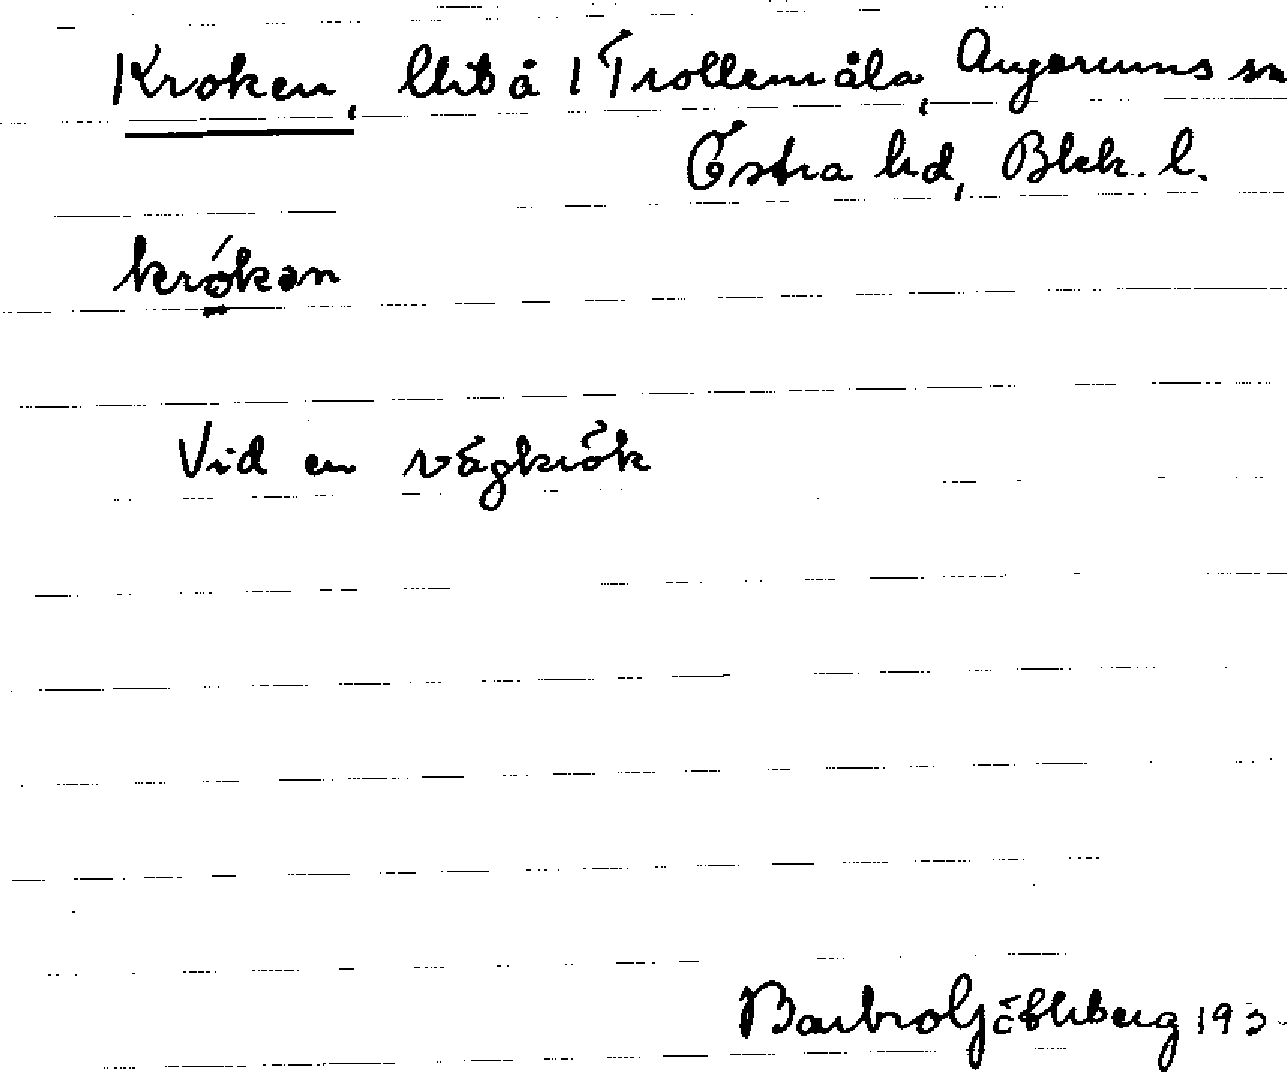 Kroken, lht å 1 Trollemåla, Augerums sn
Östra hd, Blek. l.
krókən
Vid en vägkrök
Barbro 193